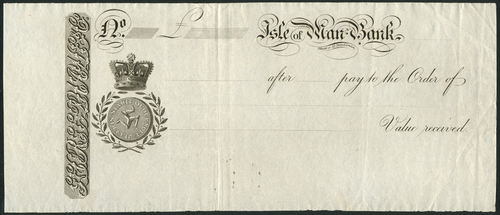 No. £ Isle of Man Bank
after pay to the Order of
Value received